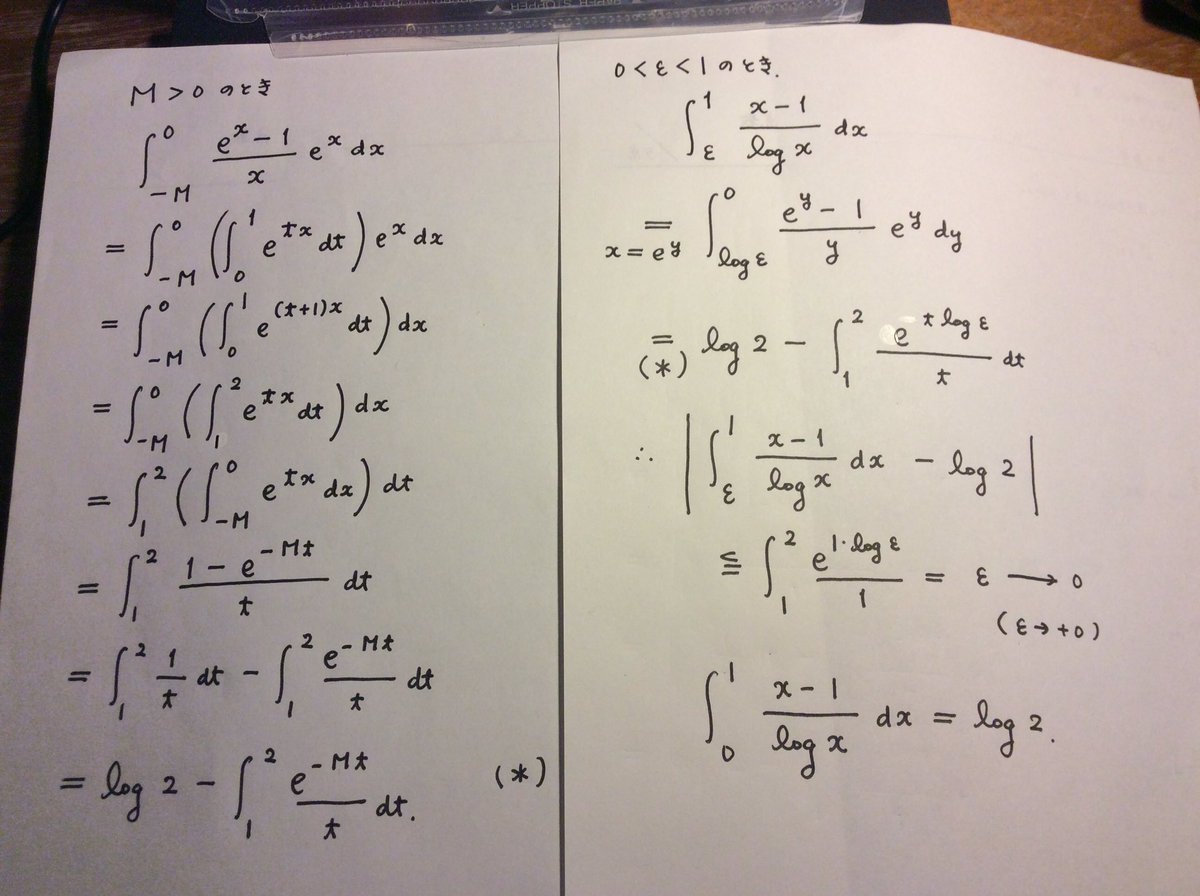 M > 0 のとき
∫_{-M}^{0} \frac{e^x - 1}{x} e^x dx
= ∫_{-M}^{0} (∫_{0}^{1} e^{tx} dt) e^x dx
= ∫_{-M}^{0} (∫_{0}^{1} e^{(t+1)x} dt) dx
= ∫_{-M}^{0} (∫_{1}^{2} e^{tx} dt) dx
= ∫_{1}^{2} (∫_{-M}^{0} e^{tx} dx) dt
= ∫_{1}^{2} \frac{1 - e^{-Mt}}{t} dt
= ∫_{1}^{2} \frac{1}{t} dt - ∫_{1}^{2} \frac{e^{-Mt}}{t} dt
= log 2 - ∫_{1}^{2} \frac{e^{-Mt}}{t} dt. (*)
0 < ε < 1 のとき.
∫_{ε}^{1} \frac{x - 1}{log x} dx
=_{x = e^y} ∫_{log ε}^{0} \frac{e^y - 1}{y} e^y dy
=_{(*)} log 2 - ∫_{1}^{2} \frac{e^{t log ε}}{t} dt
∴ |∫_{ε}^{1} \frac{x - 1}{log x} dx - log 2|
≦ ∫_{1}^{2} \frac{e^{1·log ε}}{1} = ε → 0
(ε → +0)
∫_{0}^{1} \frac{x - 1}{log x} dx = log 2.